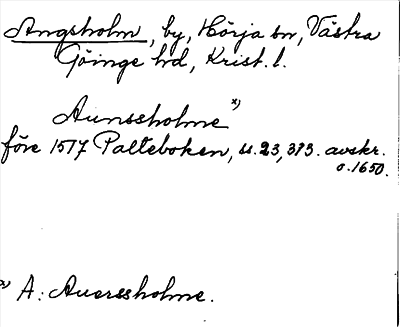 Angsholm, by, Hörja sn, Västra
Göinge hd, Krist. l.
Aunssholme x)
före 1517 Palteboken, s. 23, 373. avskr.
o. 1650.
x) A: Auerssholme.